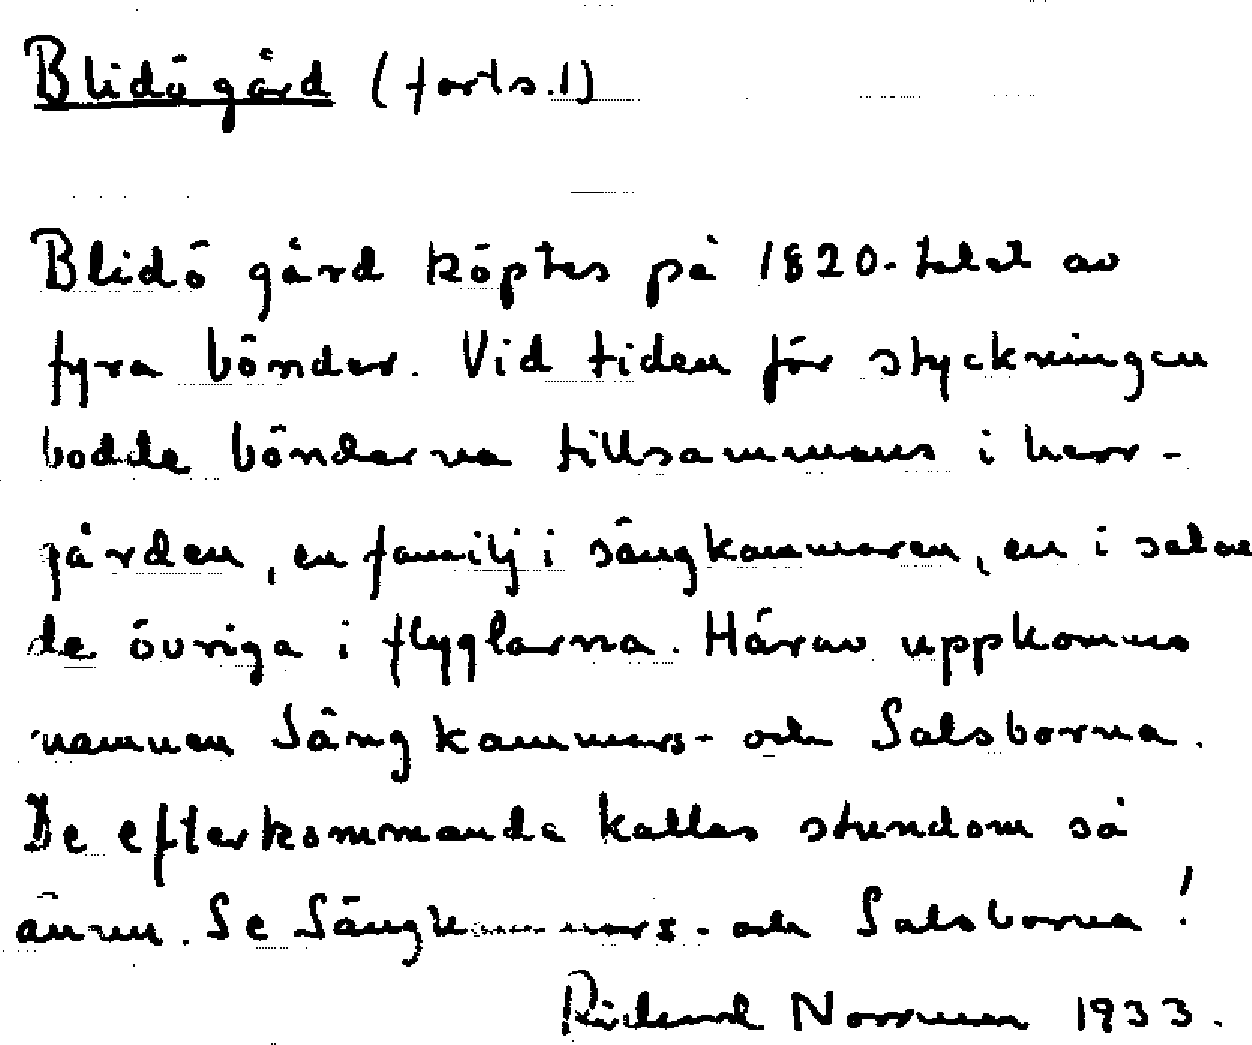 Blidö gård (forts.1)
Blidö gård köptes på 1820-talet av
fyra bönder. Vid tiden för styckningen
bodde bönderna tillsammans i herr-
gården, en familj i sängkammaren, en i salen
de övriga i flyglarna. Härav uppkommo
namnen Sängkammars- och Salsborna.
De efterkommande kallas stundom så
ännu. Se Sängkammars- och Salsborna!
Rickard Norrman 1933.